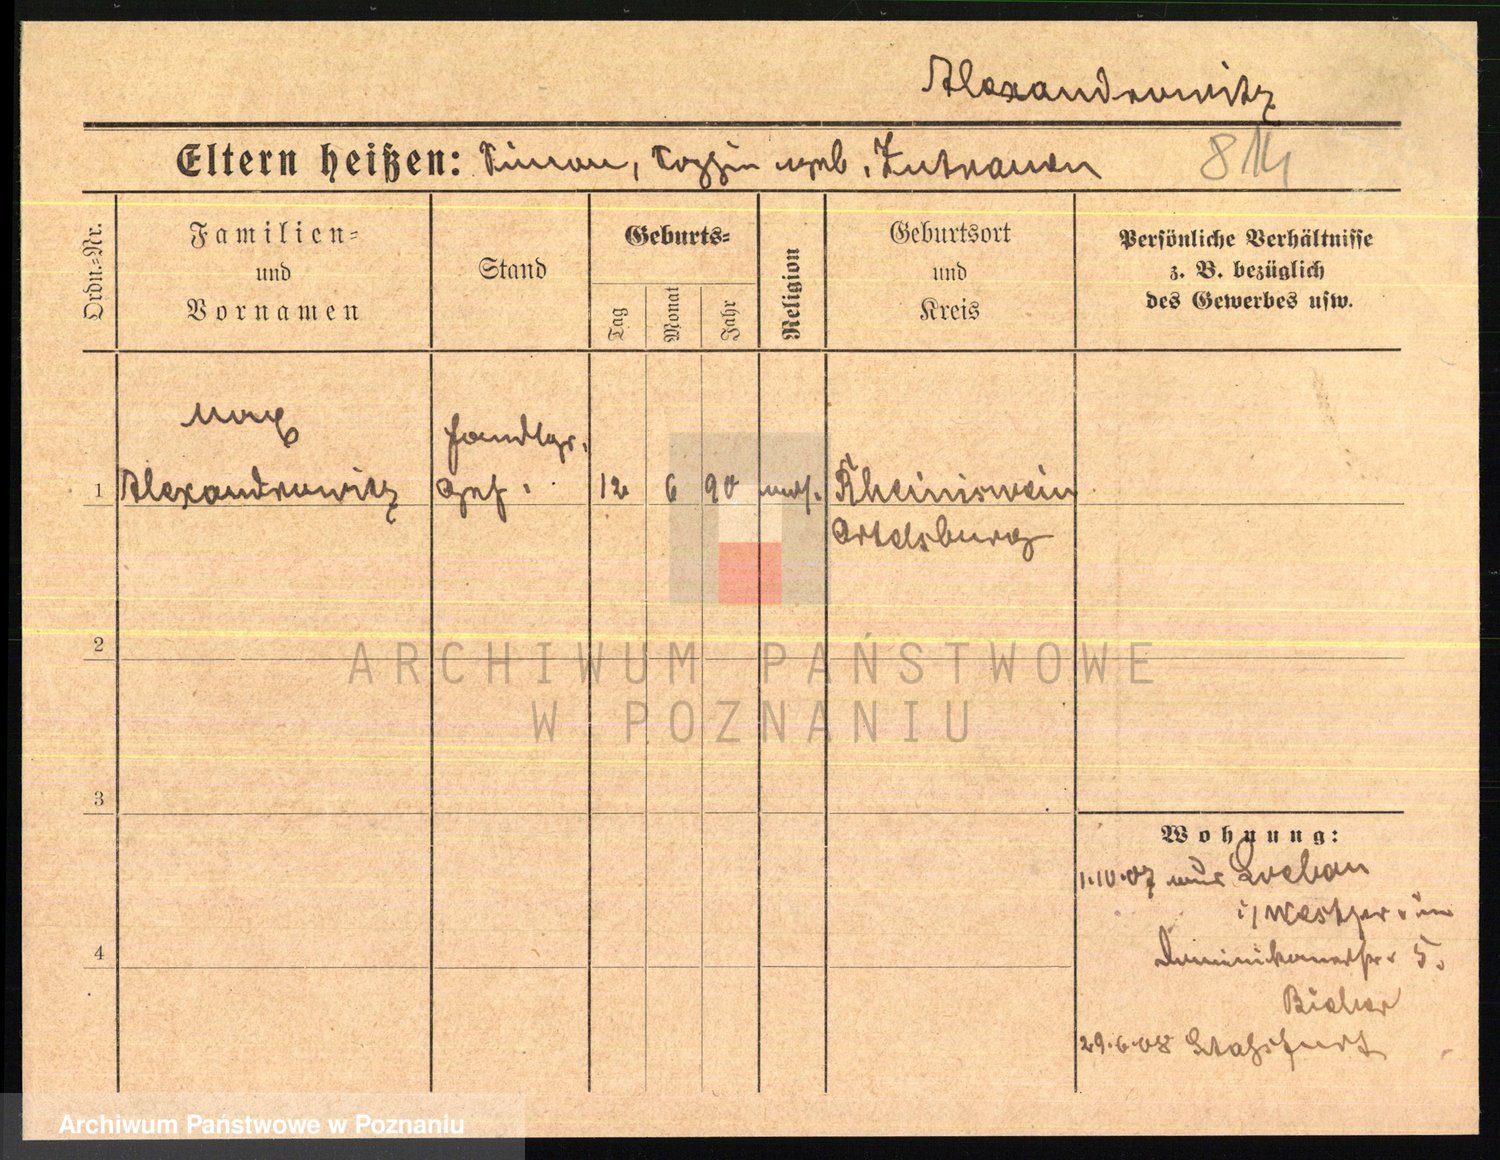 Alexandrowitz
Eltern heißen: Simon, geb. Zutrauen
814
Ordn.=Nr.
Familien=
und
Vornamen
Stand
Geburts=
Tag
Monat
Jahr
Religion
Geburtsort
und
Kreis
Persönliche Verhältnisse
z. B. bezüglich
des Gewerbes usw.
Max
Handlgs.
1 Alexandrowitz Geh. 12 6 90 mos. Rheinswein
Ortelsburg
2
3
4
Wohnung:
1.10.07 aus Loebau
i/Westpr. in
Dominikanerstr. 5.
Bieber
29.6.08 Stassfurt
ARCHIWUM PAŃSTWOWE
W POZNANIU
Archiwum Państwowe w Poznaniu